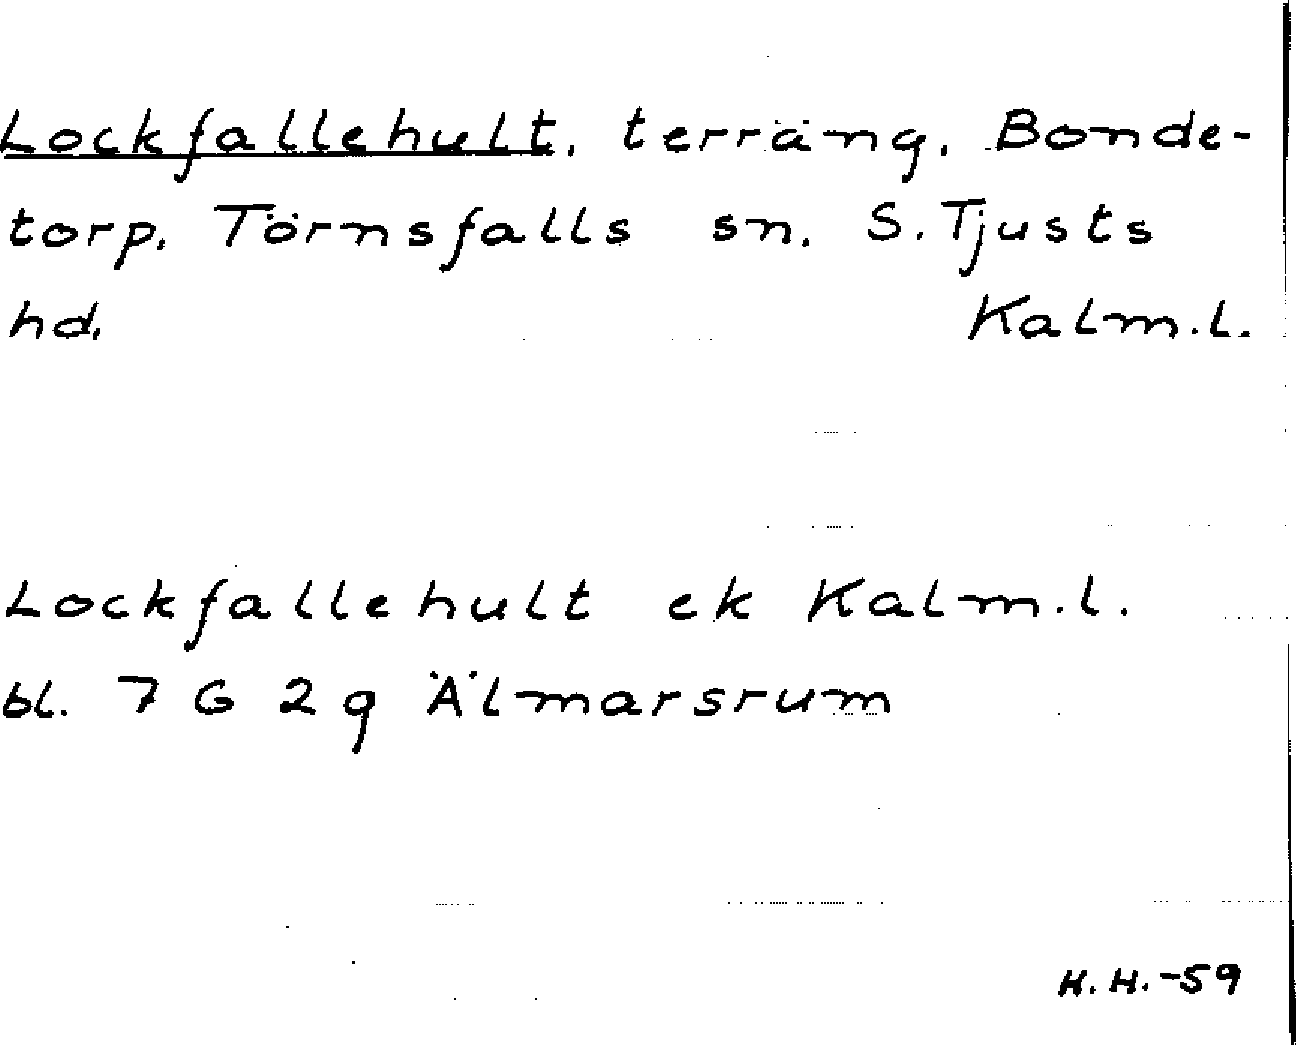 Lockfallehult, terräng, Bonde-
torp, Törnsfalls sn, S. Tjusts
hd, Kalm.l.
Lockfallehult ek Kalm.l.
bl. 7 G 2 g Älmarsrum
H.H.-59